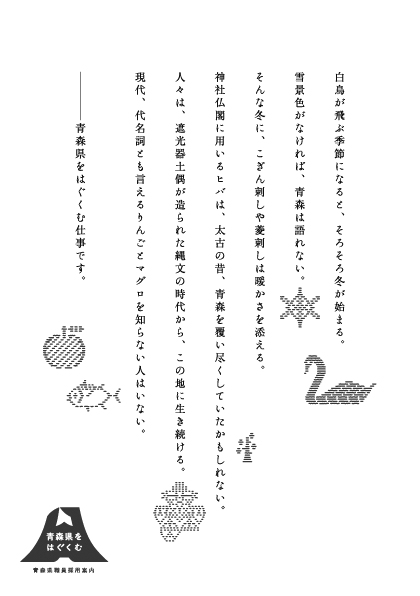 白鳥が飛ぶ季節になると、そろそろ冬が始まる。
雪景色がなければ、青森は語れない。
そんな冬に、こぎん刺しや菱刺しは暖かさを添える。
神社仏閣に用いるヒバは、太古の昔、青森を覆い尽くしていたかもしれない。
人々は、遮光器土偶が造られた縄文の時代から、この地に生き続ける。
現代、代名詞とも言えるりんごとマグロを知らない人はいない。
――青森県をはぐくむ仕事です。
青森県を
はぐくむ
青森県職員採用案内